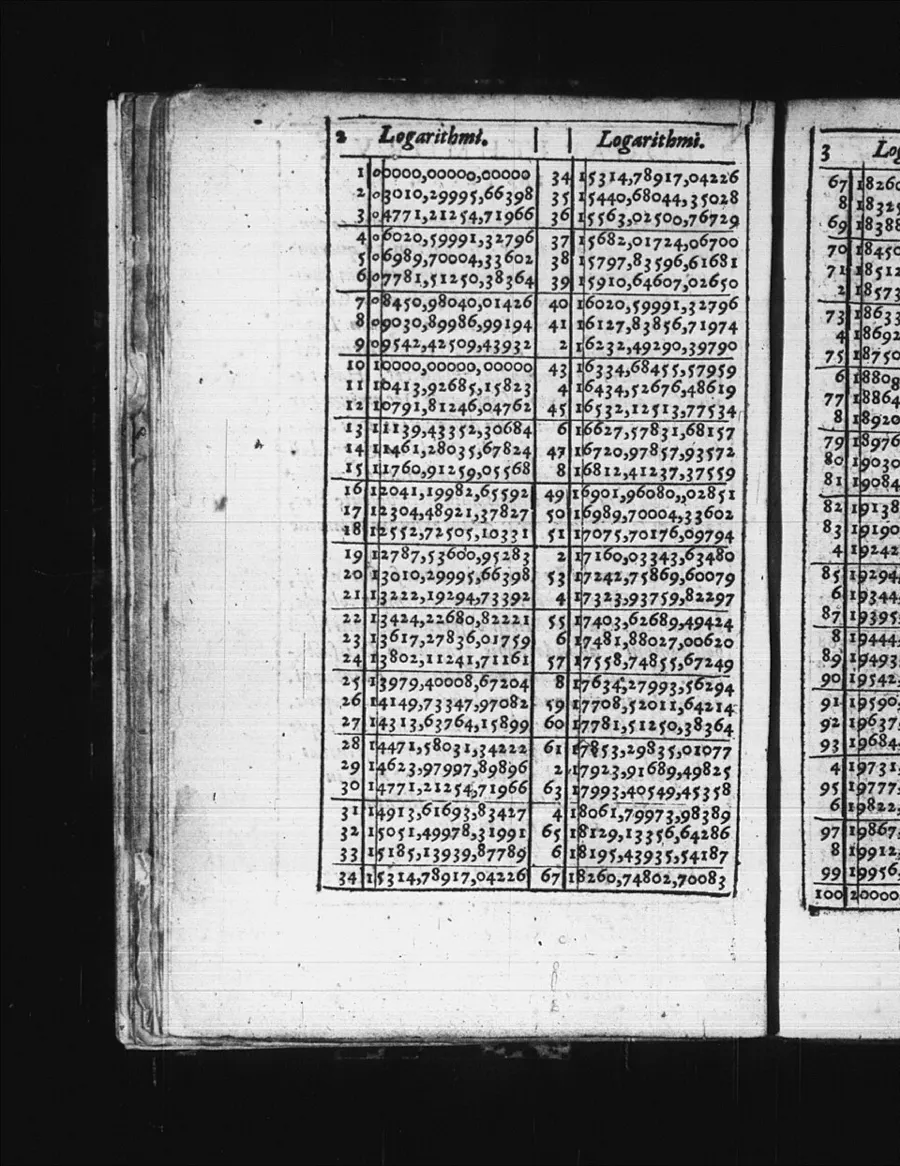 2 Logarithmi.
1 00000,00000,00000
2 03010,29995,66398
3 04771,21254,71966
4 06020,59991,32796
5 06989,70004,33602
6 07781,51250,38364
7 08450,98040,01426
8 09030,89986,99194
9 09542,42509,43932
10 10000,00000,00000
11 10413,92685,15823
12 10791,81246,04762
13 11139,43352,30684
14 11461,28035,67824
15 11760,91259,05568
16 12041,19982,65592
17 12304,48921,37827
18 12552,72505,10331
19 12787,53600,95283
20 13010,29995,66398
21 13222,19294,73392
22 13424,22680,82221
23 13617,27836,01759
24 13802,11241,71161
25 13979,40008,67204
26 14149,73347,97082
27 14313,63764,15899
28 14471,58031,34222
29 14623,97997,89896
30 14771,21254,71966
31 14913,61693,83427
32 15051,49978,31991
33 15185,13939,87789
34 15314,78917,04226
Logarithmi.
34 15314,78917,04226
35 15440,68044,35028
36 15563,02500,76729
37 15682,01724,06700
38 15797,83596,61681
39 15910,64607,02650
40 16020,59991,32796
41 16127,83856,71974
2 16232,49290,39790
43 16334,68455,57959
4 16434,52676,48619
45 16532,12513,77534
6 16627,57831,68157
47 16720,97857,93572
8 16812,41237,37559
49 16901,96080,,02851
50 16989,70004,33602
51 17075,70176,09794
2 17160,03343,63480
53 17242,75869,60079
4 17323,93759,82297
55 17403,62689,49424
6 17481,88027,00620
57 17558,74855,67249
8 17634,27993,56294
59 17708,52011,64214
60 17781,51250,38364
61 17853,29835,01077
2 17923,91689,49825
63 17993,40549,45358
4 18061,79973,98389
65 18129,13356,64286
6 18195,43935,54187
67 18260,74802,70083
3 Log
67 18260
8 18325
69 18388
70 18450
71 18512
2 18573
73 18633
4 18692
75 18750
6 18808
77 18864
8 18920
79 18976
80 19030
81 19084
82 19138
83 19190
4 19242
85 19294,
6 19344,
87 19395,
8 19444,
89 19493,
90 19542,
91 19590,
92 19637,
93 19684,
4 19731,
95 19777,
6 19822,
97 19867,
8 19912,
99 19956,
100 20000,